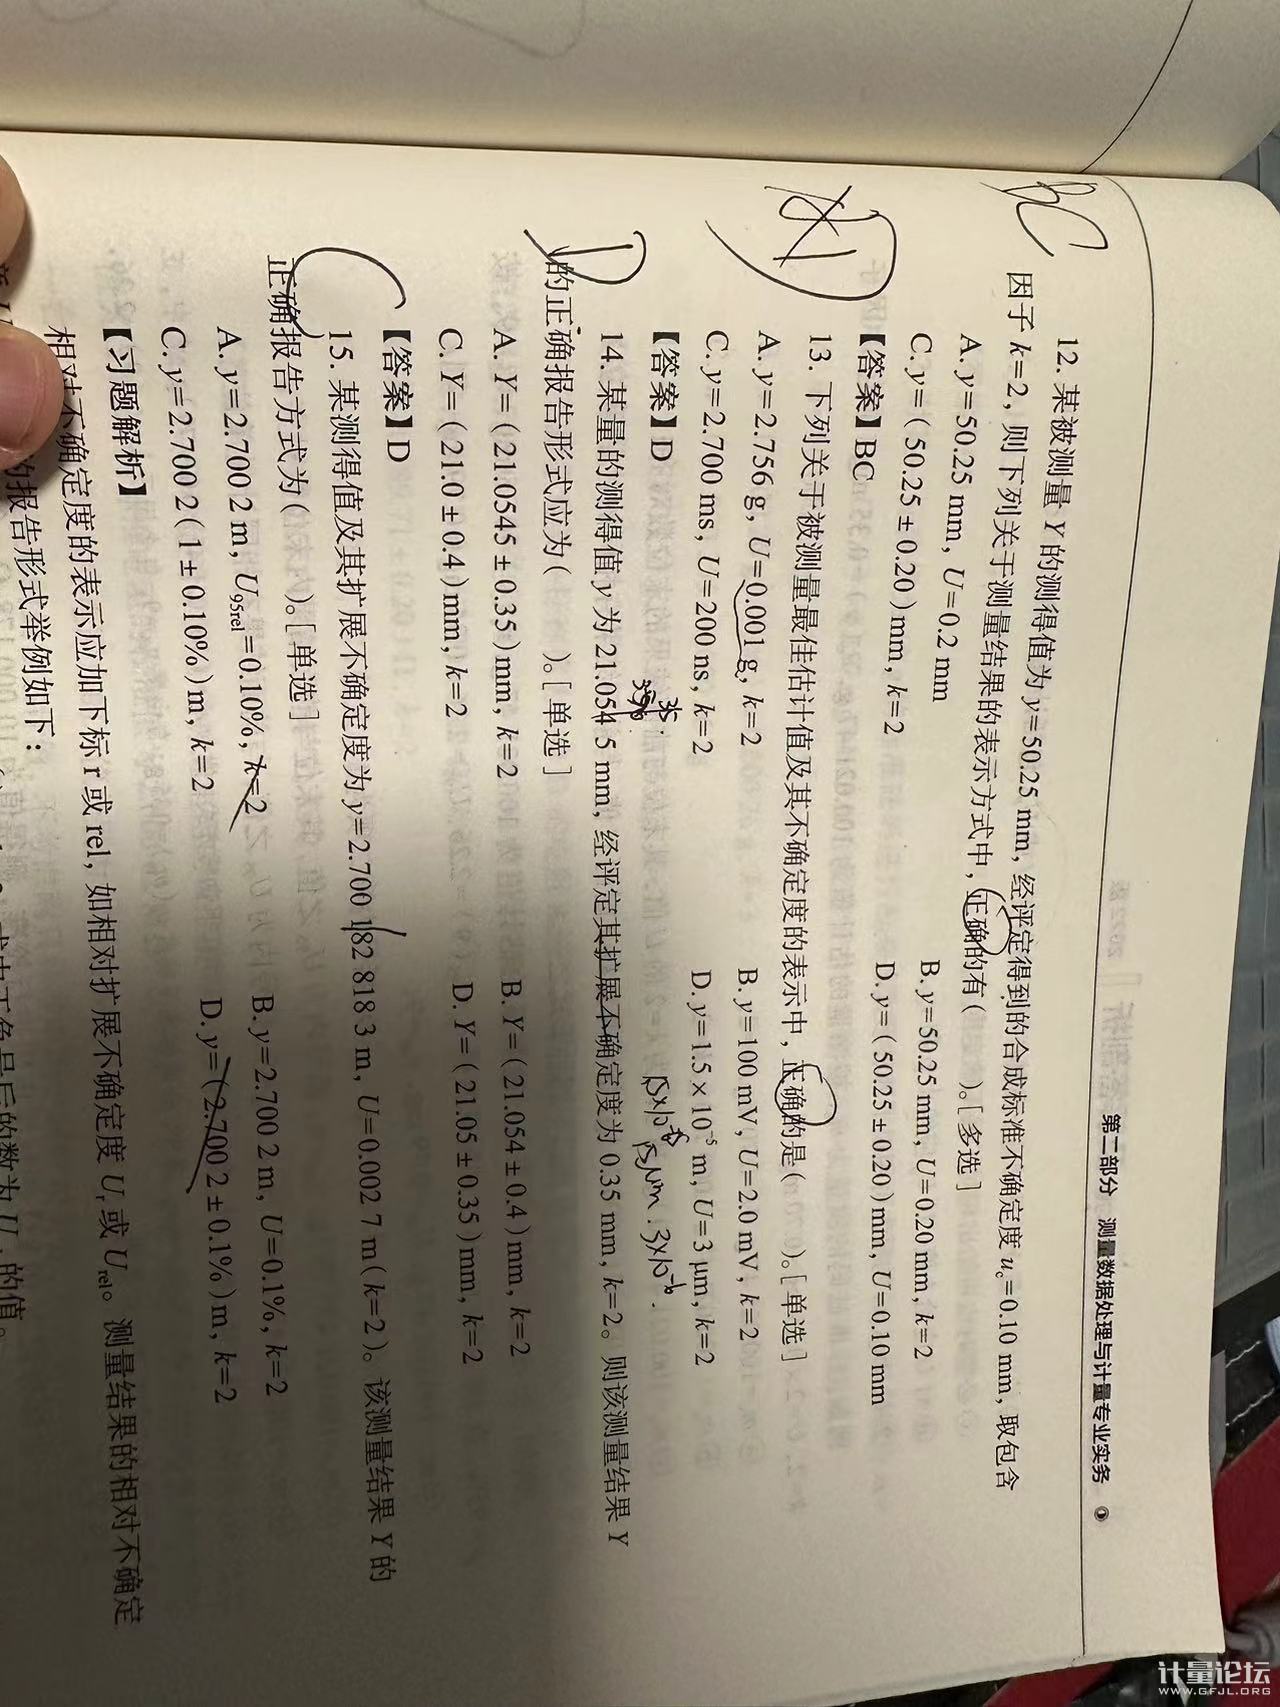 第二部分 测量数据处理与计量专业实务
BC
12. 某被测量 Y 的测得值为 y=50.25 mm, 经评定得到的合成标准不确定度 u_c=0.10 mm, 取包含
因子 k=2, 则下列关于测量结果的表示方式中, 正确的有( )。[多选]
A. y=50.25 mm, U=0.2 mm B. y=50.25 mm, U=0.20 mm, k=2
C. y=(50.25±0.20)mm, k=2 D. y=(50.25±0.20)mm, U=0.10 mm
【答案】BC
D
13. 下列关于被测量最佳估计值及其不确定度的表示中, 正确的是( )。[单选]
A. y=2.756 g, U=0.001 g, k=2 B. y=100 mV, U=2.0 mV, k=2
C. y=2.700 ms, U=200 ns, k=2 D. y=1.5×10⁻⁵ m, U=3 μm, k=2
【答案】D
35
15×10⁻⁶
15μm. 3×10⁻⁶.
D
14. 某量的测得值 y 为 21.054 5 mm, 经评定其扩展不确定度为 0.35 mm, k=2。则该测量结果 Y
的正确报告形式应为( )。[单选]
A. Y=(21.0545±0.35)mm, k=2 B. Y=(21.054±0.4)mm, k=2
C. Y=(21.0±0.4)mm, k=2 D. Y=(21.05±0.35)mm, k=2
【答案】D
C
15. 某测得值及其扩展不确定度为 y=2.700 182 818 3 m, U=0.002 7 m(k=2)。该测量结果 Y 的
正确报告方式为( )。[单选]
A. y=2.700 2 m, U₉₅rel=0.10%, k=2 B. y=2.700 2 m, U=0.1%, k=2
C. y=2.700 2(1±0.10%)m, k=2 D. y=(2.700 2±0.1%)m, k=2
【习题解析】
相对不确定度的表示应加下标 r 或 rel, 如相对扩展不确定度 U_r 或 U_rel。测量结果的相对不确定
的报告形式举例如下:
式中正负号后的数为 U_r 的值。
计量论坛
WWW.GFJL.ORG